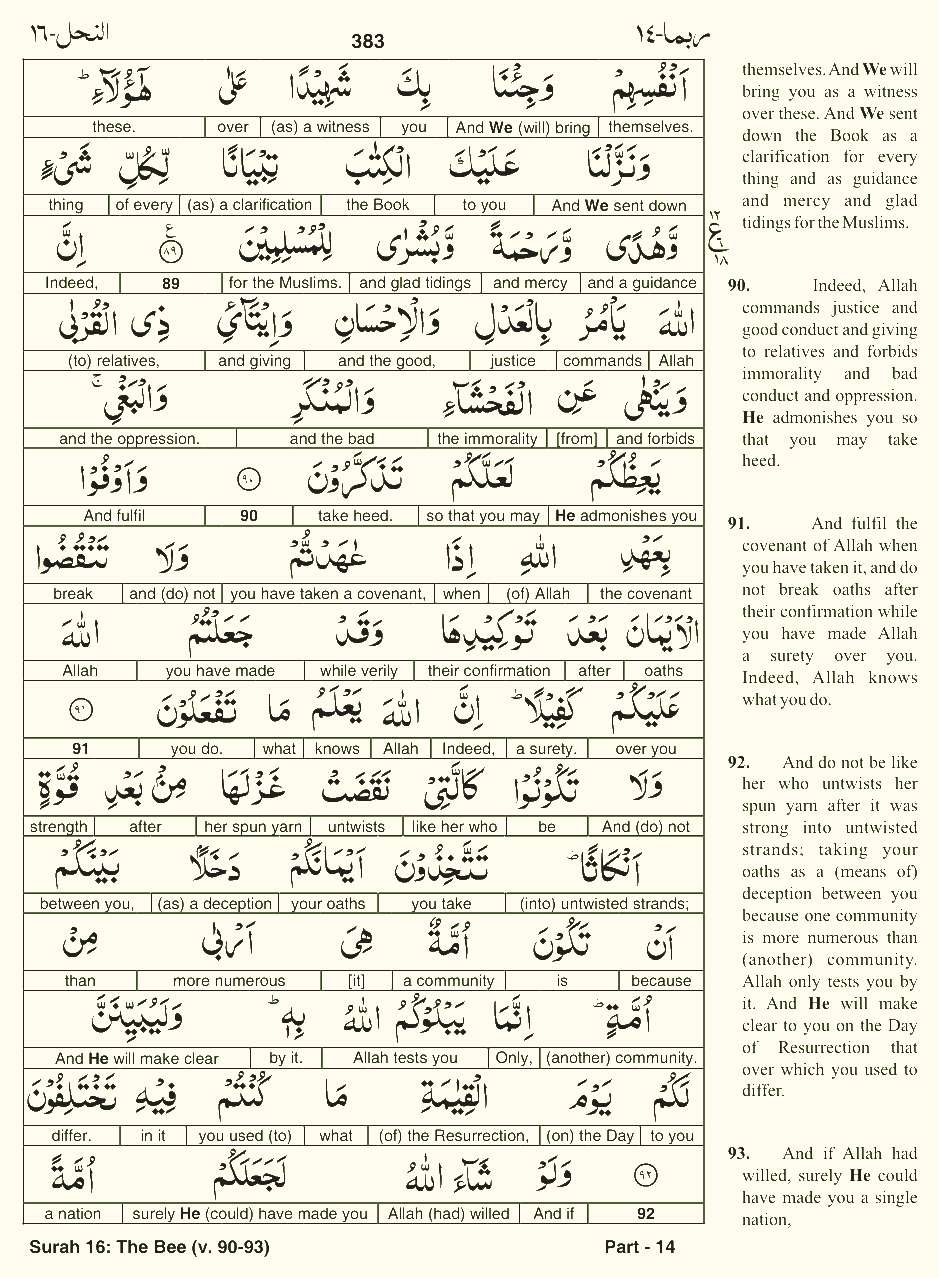 النحل-١٦ 383 ربما-١٤
اَنْفُسِهِمْ وَجِئْنَا بِكَ شَهِيْدًا عَلٰى هٰٓؤُلَآءِ ؕ
themselves. And We (will) bring you (as) a witness over these.
وَنَزَّلْنَا عَلَيْكَ الْكِتٰبَ تِبْيَانًا لِّكُلِّ شَىْءٍ
And We sent down to you the Book (as) a clarification of every thing
وَّهُدًى وَّرَحْمَةً وَّبُشْرٰى لِلْمُسْلِمِيْنَ ٨٩ اِنَّ
and a guidance and mercy and glad tidings for the Muslims. 89 Indeed,
اللّٰهَ يَاْمُرُ بِالْعَدْلِ وَالْاِحْسَانِ وَاِيْتَآئِ ذِى الْقُرْبٰى
Allah commands justice and the good, and giving (to) relatives,
وَيَنْهٰى عَنِ الْفَحْشَآءِ وَالْمُنْكَرِ وَالْبَغْىِ ۚ
and forbids [from] the immorality and the bad and the oppression.
يَعِظُكُمْ لَعَلَّكُمْ تَذَكَّرُوْنَ ٩٠ وَاَوْفُوْا
He admonishes you so that you may take heed. 90 And fulfil
بِعَهْدِ اللّٰهِ اِذَا عٰهَدْتُّمْ وَلَا تَنْقُضُوا
the covenant (of) Allah when you have taken a covenant, and (do) not break
الْاَيْمَانَ بَعْدَ تَوْكِيْدِهَا وَقَدْ جَعَلْتُمُ اللّٰهَ
oaths after their confirmation while verily you have made Allah
عَلَيْكُمْ كَفِيْلًا ؕ اِنَّ اللّٰهَ يَعْلَمُ مَا تَفْعَلُوْنَ ٩١
over you a surety. Indeed, Allah knows what you do. 91
وَلَا تَكُوْنُوْا كَالَّتِىْ نَقَضَتْ غَزْلَهَا مِنْۢ بَعْدِ قُوَّةٍ
And (do) not be like her who untwists her spun yarn after strength
اَنْكَاثًا ؕ تَتَّخِذُوْنَ اَيْمَانَكُمْ دَخَلًۢا بَيْنَكُمْ
(into) untwisted strands; you take your oaths (as) a deception between you,
اَنْ تَكُوْنَ اُمَّةٌ هِىَ اَرْبٰى مِنْ
because is a community [it] more numerous than
اُمَّةٍ ؕ اِنَّمَا يَبْلُوْكُمُ اللّٰهُ بِهٖ ؕ وَلَيُبَيِّنَنَّ
(another) community. Only, Allah tests you by it. And He will make clear
لَكُمْ يَوْمَ الْقِيٰمَةِ مَا كُنْتُمْ فِيْهِ تَخْتَلِفُوْنَ
to you (on) the Day (of) the Resurrection, what you used (to) in it differ.
٩٢ وَلَوْ شَآءَ اللّٰهُ لَجَعَلَكُمْ اُمَّةً
92 And if Allah (had) willed surely He (could) have made you a nation
١٢
ع
٦
١٨
themselves. And We will
bring you as a witness
over these. And We sent
down the Book as a
clarification for every
thing and as guidance
and mercy and glad
tidings for the Muslims.
90. Indeed, Allah
commands justice and
good conduct and giving
to relatives and forbids
immorality and bad
conduct and oppression.
He admonishes you so
that you may take
heed.
91. And fulfil the
covenant of Allah when
you have taken it, and do
not break oaths after
their confirmation while
you have made Allah
a surety over you.
Indeed, Allah knows
what you do.
92. And do not be like
her who untwists her
spun yarn after it was
strong into untwisted
strands; taking your
oaths as a (means of)
deception between you
because one community
is more numerous than
(another) community.
Allah only tests you by
it. And He will make
clear to you on the Day
of Resurrection that
over which you used to
differ.
93. And if Allah had
willed, surely He could
have made you a single
nation,
Surah 16: The Bee (v. 90-93) Part - 14